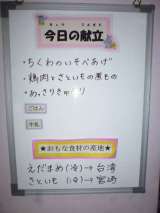 きょう　こんだて
今日の献立
・ちくわのいそべあげ
・鶏肉とさといもの煮もの
・あっさりきゅうり
ごはん
牛乳
★おもな食材の産地★
えだまめ(冷)→台湾
さといも (冷)→宮崎